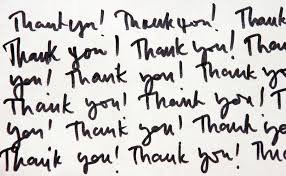 Thank you! Thank you! Thank
Thank you! Thank you! Thank
you! Thank you! Thank you!
Thank you! Thank you! Thank
you! Thank you! Thank you!
Thank you! Thank you!